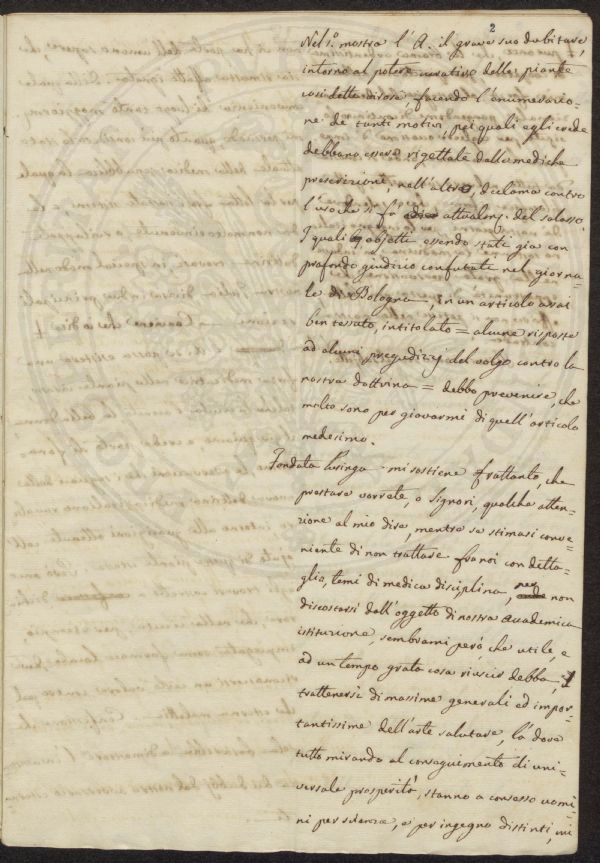 2
Nel 1.º mostra l'A. il grave suo dubitare,
intorno al potere curativo delle piante
così dette dirosi, facendo l'enumerazio=
ne de' tanti motivi, pei quali egli crede
debbano essere rigettate dalla medicha
prescrizione, nell'altro, declama contro
l'uso che si fa attualm. del salasso.
I quali objetti essendo stati già con
profondo giudizio confutati nel giorna=
le di Bologna, in un articolo assai
ben tessuto, intitolato = alcune risposte
ad alcuni pregiudizj del volgo contro la
nostra dottrina = debbo prevenire, che
molto sono per giovarmi di quell'articolo
medesimo.
Fondata lusinga mi sostiene frattanto, che
prestare vorrete, o Signori, qualche atten=
zione al mio dire, mentre se stimasi conve=
niente di non trattare fra noi con detta=
glio, temi di medica disciplina, per non
discostarsi dall'oggetto di nostra accademica
istituzione, sembrami però che utile, e
ad un tempo grata cosa riuscir debba,
trattenersi di massime generali ed impor=
tantissime dell'arte salutare, là dove
tutto mirando al conseguimento di uni=
versale prosperità, stanno a consesso uomi=
ni per scienza, e per ingegno distinti, mi